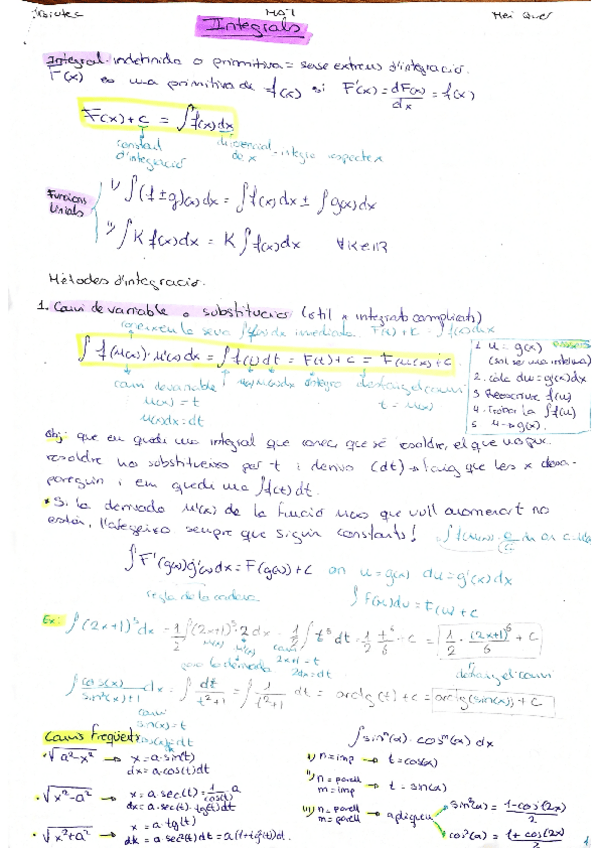 MA1
Integrals
Integral indefinida o primitiva = sense extrems d'integració.
F(x) es una primitiva de f(x) si F'(x) = dF(x)/dx = f(x)
F(x) + C = ∫f(x)dx
constant d'integració
diferencial de x
integro respecte x
Funcions lineals
i) ∫(f ± g)(x)dx = ∫f(x)dx ± ∫g(x)dx
ii) ∫K f(x)dx = K∫f(x)dx ∀K∈ℝ
Mètodes d'integració.
1. Canvi de variable o substitució (útil x integrals complicats)
∫f(u(x))·u'(x)dx = ∫f(t)dt = F(t) + C = F(u(x)) + C
canvi de variable
u(x) = t
u'(x)dx = dt
integro
desfaig el canvi
t = u(x)
1. u = g(x)
2. calc du = g'(x)dx
3. Reescriure f(u)
4. Trobar la ∫f(u)
5. u → g(x).
Obj: que em quedi una integral que conec, que sé resoldre, el que no puc
resoldre ho substitueixo per t i derivo (dt) → haig que les x desa-
pareguin i em quedi una ∫f(t)dt.
* Si la derivada u'(x) de la funció u(x) que vull anomenar t no
està, l'afegeixo sempre que siguin constants!
∫F'(g(x))g'(x)dx = F(g(x)) + C on u = g(x) du = g'(x)dx
regla de la cadena
∫F'(u)du = F(u) + C
Ex: ∫(2x+1)⁵dx = 1/2 ∫(2x+1)⁵·2dx = 1/2 ∫t⁵dt = 1/2 t⁶/6 + C = 1/2 · (2x+1)⁶/6 + C
canvi
2x+1 = t
2dx = dt
desfaig el canvi
∫cos(x)/(sin²(x)+1) dx = ∫dt/(t²+1) = ∫1/(t²+1) dt = arctg(t) + C = arctg(sin(x)) + C
canvi
sin(x) = t
cos(x)dx = dt
Canvis freqüents
· √(a²-x²) → x = a·sin(t)
dx = a·cos(t)dt
· √(x²-a²) → x = a·sec(t) = 1/cos(t)·a
dx = a·sec(t)·tg(t)dt
· √(x²+a²) → x = a·tg(t)
dx = a·sec²(t)dt = a(1+tg²(t))dt.
∫sinⁿ(x)·cosᵐ(x) dx
i) n = imp → t = cos(x)
ii) n = parell
m = imp → t = sin(x)
iii) n = parell
m = parell → apliquem
sin²(x) = (1-cos(2x))/2
cos²(x) = (1+cos(2x))/2